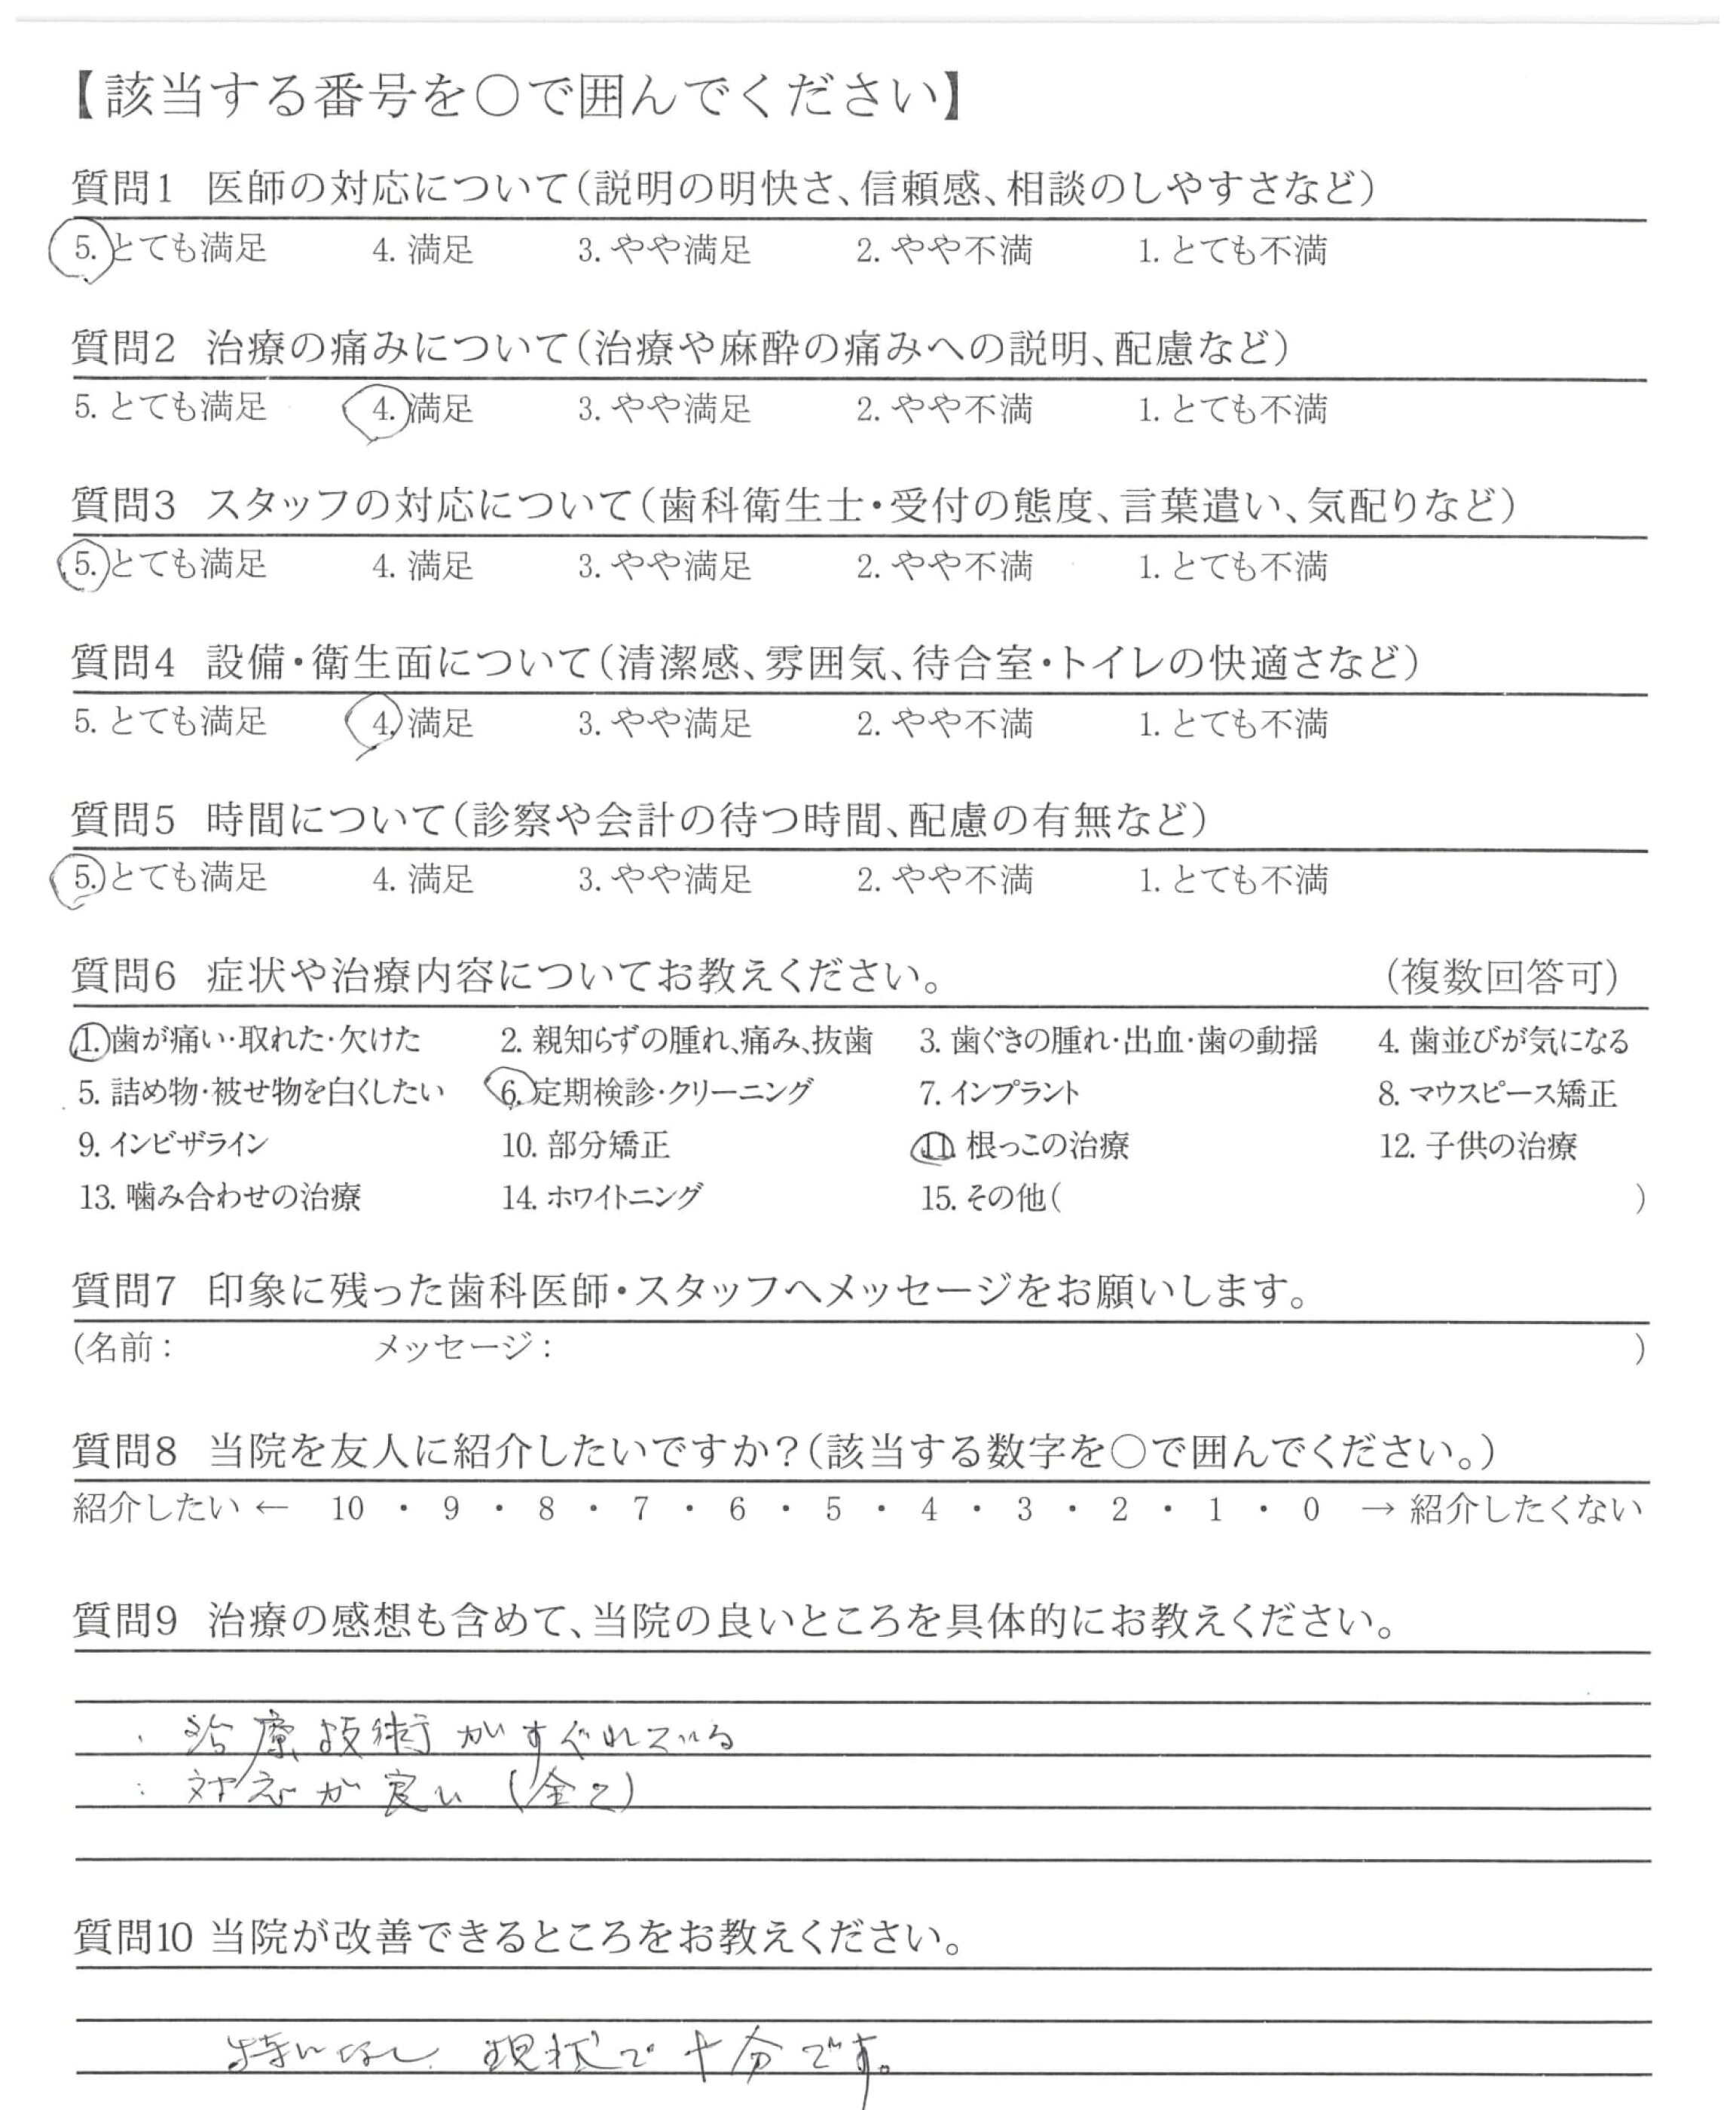 【該当する番号を○で囲んでください】
質問1 医師の対応について(説明の明快さ、信頼感、相談のしやすさなど)
5. とても満足 4. 満足 3. やや満足 2. やや不満 1. とても不満
質問2 治療の痛みについて(治療や麻酔の痛みへの説明、配慮など)
5. とても満足 4. 満足 3. やや満足 2. やや不満 1. とても不満
質問3 スタッフの対応について(歯科衛生士・受付の態度、言葉遣い、気配りなど)
5. とても満足 4. 満足 3. やや満足 2. やや不満 1. とても不満
質問4 設備・衛生面について(清潔感、雰囲気、待合室・トイレの快適さなど)
5. とても満足 4. 満足 3. やや満足 2. やや不満 1. とても不満
質問5 時間について(診察や会計の待つ時間、配慮の有無など)
5. とても満足 4. 満足 3. やや満足 2. やや不満 1. とても不満
質問6 症状や治療内容についてお教えください。 (複数回答可)
1. 歯が痛い・取れた・欠けた 2. 親知らずの腫れ、痛み、抜歯 3. 歯ぐきの腫れ・出血・歯の動揺 4. 歯並びが気になる
5. 詰め物・被せ物を白くしたい 6. 定期検診・クリーニング 7. インプラント 8. マウスピース矯正
9. インビザライン 10. 部分矯正 11. 根っこの治療 12. 子供の治療
13. 噛み合わせの治療 14. ホワイトニング 15. その他( )
質問7 印象に残った歯科医師・スタッフへメッセージをお願いします。
(名前: メッセージ: )
質問8 当院を友人に紹介したいですか?(該当する数字を○で囲んでください。)
紹介したい ← 10 ・ 9 ・ 8 ・ 7 ・ 6 ・ 5 ・ 4 ・ 3 ・ 2 ・ 1 ・ 0 → 紹介したくない
質問9 治療の感想も含めて、当院の良いところを具体的にお教えください。
・治療技術がすぐれている
・対応が良い (全て)
質問10 当院が改善できるところをお教えください。
特になし 現状で十分です。